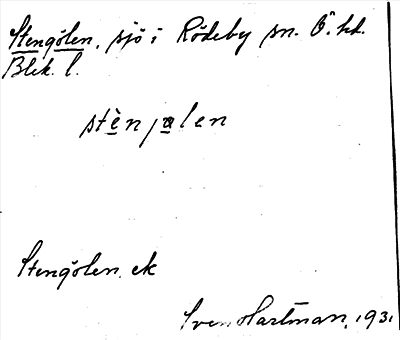 Stengölen, sjö i Rödeby sn. Ö. hd.
Blek. l.
stènjalen
Stengölen, ek
Sven Hartman, 1931